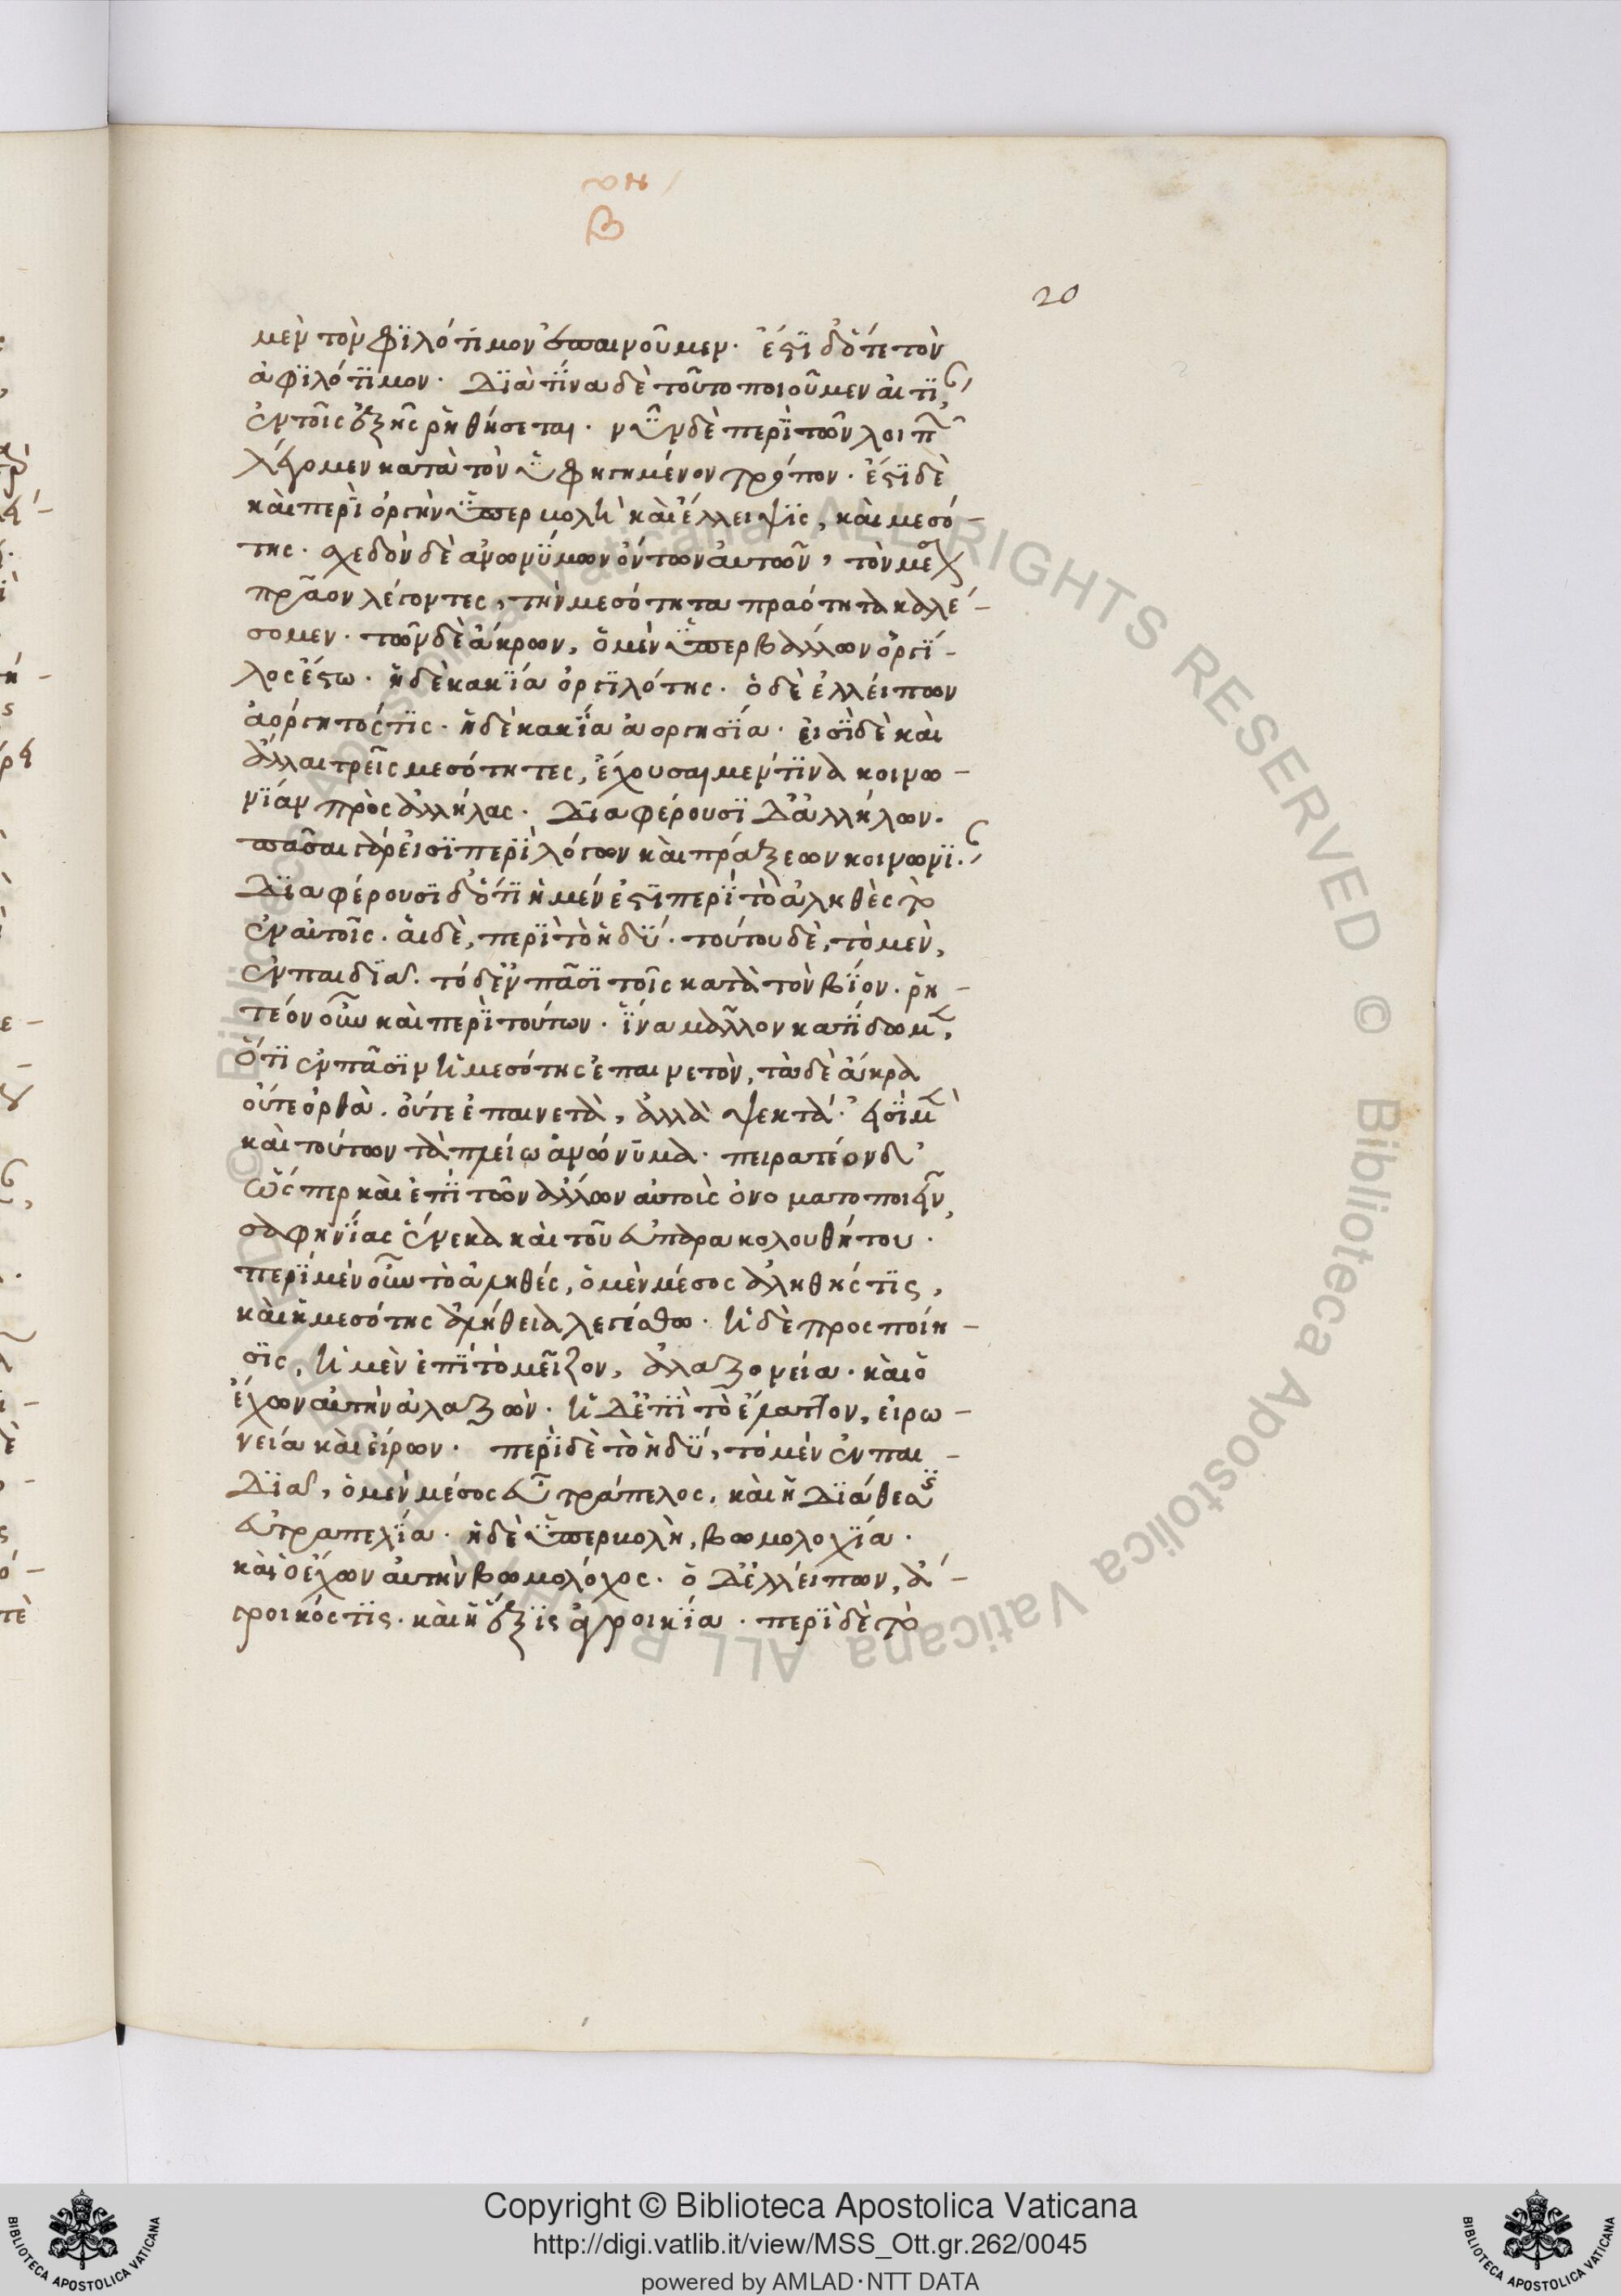 νη
β
20
μὲν τὸν φιλότιμον ἐπαινοῦμεν. ἔστι δ' ὅτε τὸν
ἀφιλότιμον. Διὰ τίνα δὲ τοῦτο ποιοῦμεν αἰτί,
ἐν τοῖς ἑξῆς ῥηθήσεται. νῦν δὲ περὶ τῶν λοιπ
λέγομεν κατὰ τὸν ὑφηγημένον τρόπον. ἔστι δὲ
καὶ περὶ ὀργὴν ὑπερβολὴ καὶ ἔλλειψις, καὶ μεσό-
της. σχεδὸν δὲ ἀνωνύμων ὄντων αὐτῶν, τὸν μέσ
πρᾶον λέγοντες, τὴν μεσότητα πραότητα καλέ-
σομεν. τῶν δὲ ἄκρων, ὁ μὲν ὑπερβάλλων ὀργί-
λος ἔστω. ἡ δὲ κακία ὀργιλότης. ὁ δὲ ἐλλείπων
ἀόργητός τις. ἡ δὲ κακία ἀοργησία. εἰσὶ δὲ καὶ
ἄλλαι τρεῖς μεσότητες, ἔχουσαι μέν τινα κοινω-
νίαν πρὸς ἀλλήλας. Διαφέρουσι δ' ἀλλήλων.
πᾶσαι γάρ εἰσι περὶ λόγων καὶ πράξεων κοινωνί.
Διαφέρουσι δ' ὅτι ἡ μέν ἐστι περὶ τὸ ἀληθὲς τὸ
ἐν αὐτοῖς. αἱ δὲ, περὶ τὸ ἡδύ. τούτου δὲ, τὸ μὲν,
ἐν παιδιᾷ. τό δ' ἐν πᾶσι τοῖς κατὰ τὸν βίον. ῥη-
τέον οὖν καὶ περὶ τούτων. ἵνα μᾶλλον κατίδωμ,
ὅτι ἐν πᾶσιν ἡ μεσότης ἐπαινετὸν, τὰ δὲ ἄκρα
οὔτε ὀρθὰ. οὔτε ἐπαινετὰ, ἀλλὰ ψεκτά. εἰσὶ μ
καὶ τούτων τὰ πλείω ἀνώνυμα. πειρατέον δ'
ὥσπερ καὶ ἐπὶ τῶν ἄλλων αὐτοὶς ὀνοματοποιεῖν,
σαφηνίας ἕνεκα καὶ τοῦ εὐπαρακολουθήτου.
περὶ μὲν οὖν τὸ ἀληθές, ὁ μὲν μέσος ἀληθής τις,
καὶ ἡ μεσότης ἀλήθεια λεγέσθω. ἡ δὲ προσποίη-
σις, ἡ μὲν ἐπὶ τὸ μεῖζον, ἀλαζονεία. καὶ ὁ
ἔχων αὐτὴν ἀλαζών. ἡ δ' ἐπὶ τὸ ἔλαττον, εἰρω-
νεία καὶ εἴρων. περὶ δὲ τὸ ἡδύ, τὸ μὲν ἐν παι-
διᾷ, ὁ μὲν μέσος εὐτράπελος, καὶ ἡ διάθεσις
εὐτραπελία. ἡ δὲ ὑπερβολὴ, βωμολοχία.
καὶ ὁ ἔχων αὐτὴν βωμολόχος. ὁ δ' ἐλλείπων, ἄ-
γροικός τις. καὶ ἡ ἕξις ἀγροικία. περὶ δὲ τὸ
© Biblioteca Apostolica Vaticana ALL RIGHTS RESERVED © Biblioteca Apostolica Vaticana ALL RIGHTS RESERVED
BIBLIOTECA APOSTOLICA VATICANA
Copyright © Biblioteca Apostolica Vaticana
http://digi.vatlib.it/view/MSS_Ott.gr.262/0045
powered by AMLAD·NTT DATA
BIBLIOTECA APOSTOLICA VATICANA